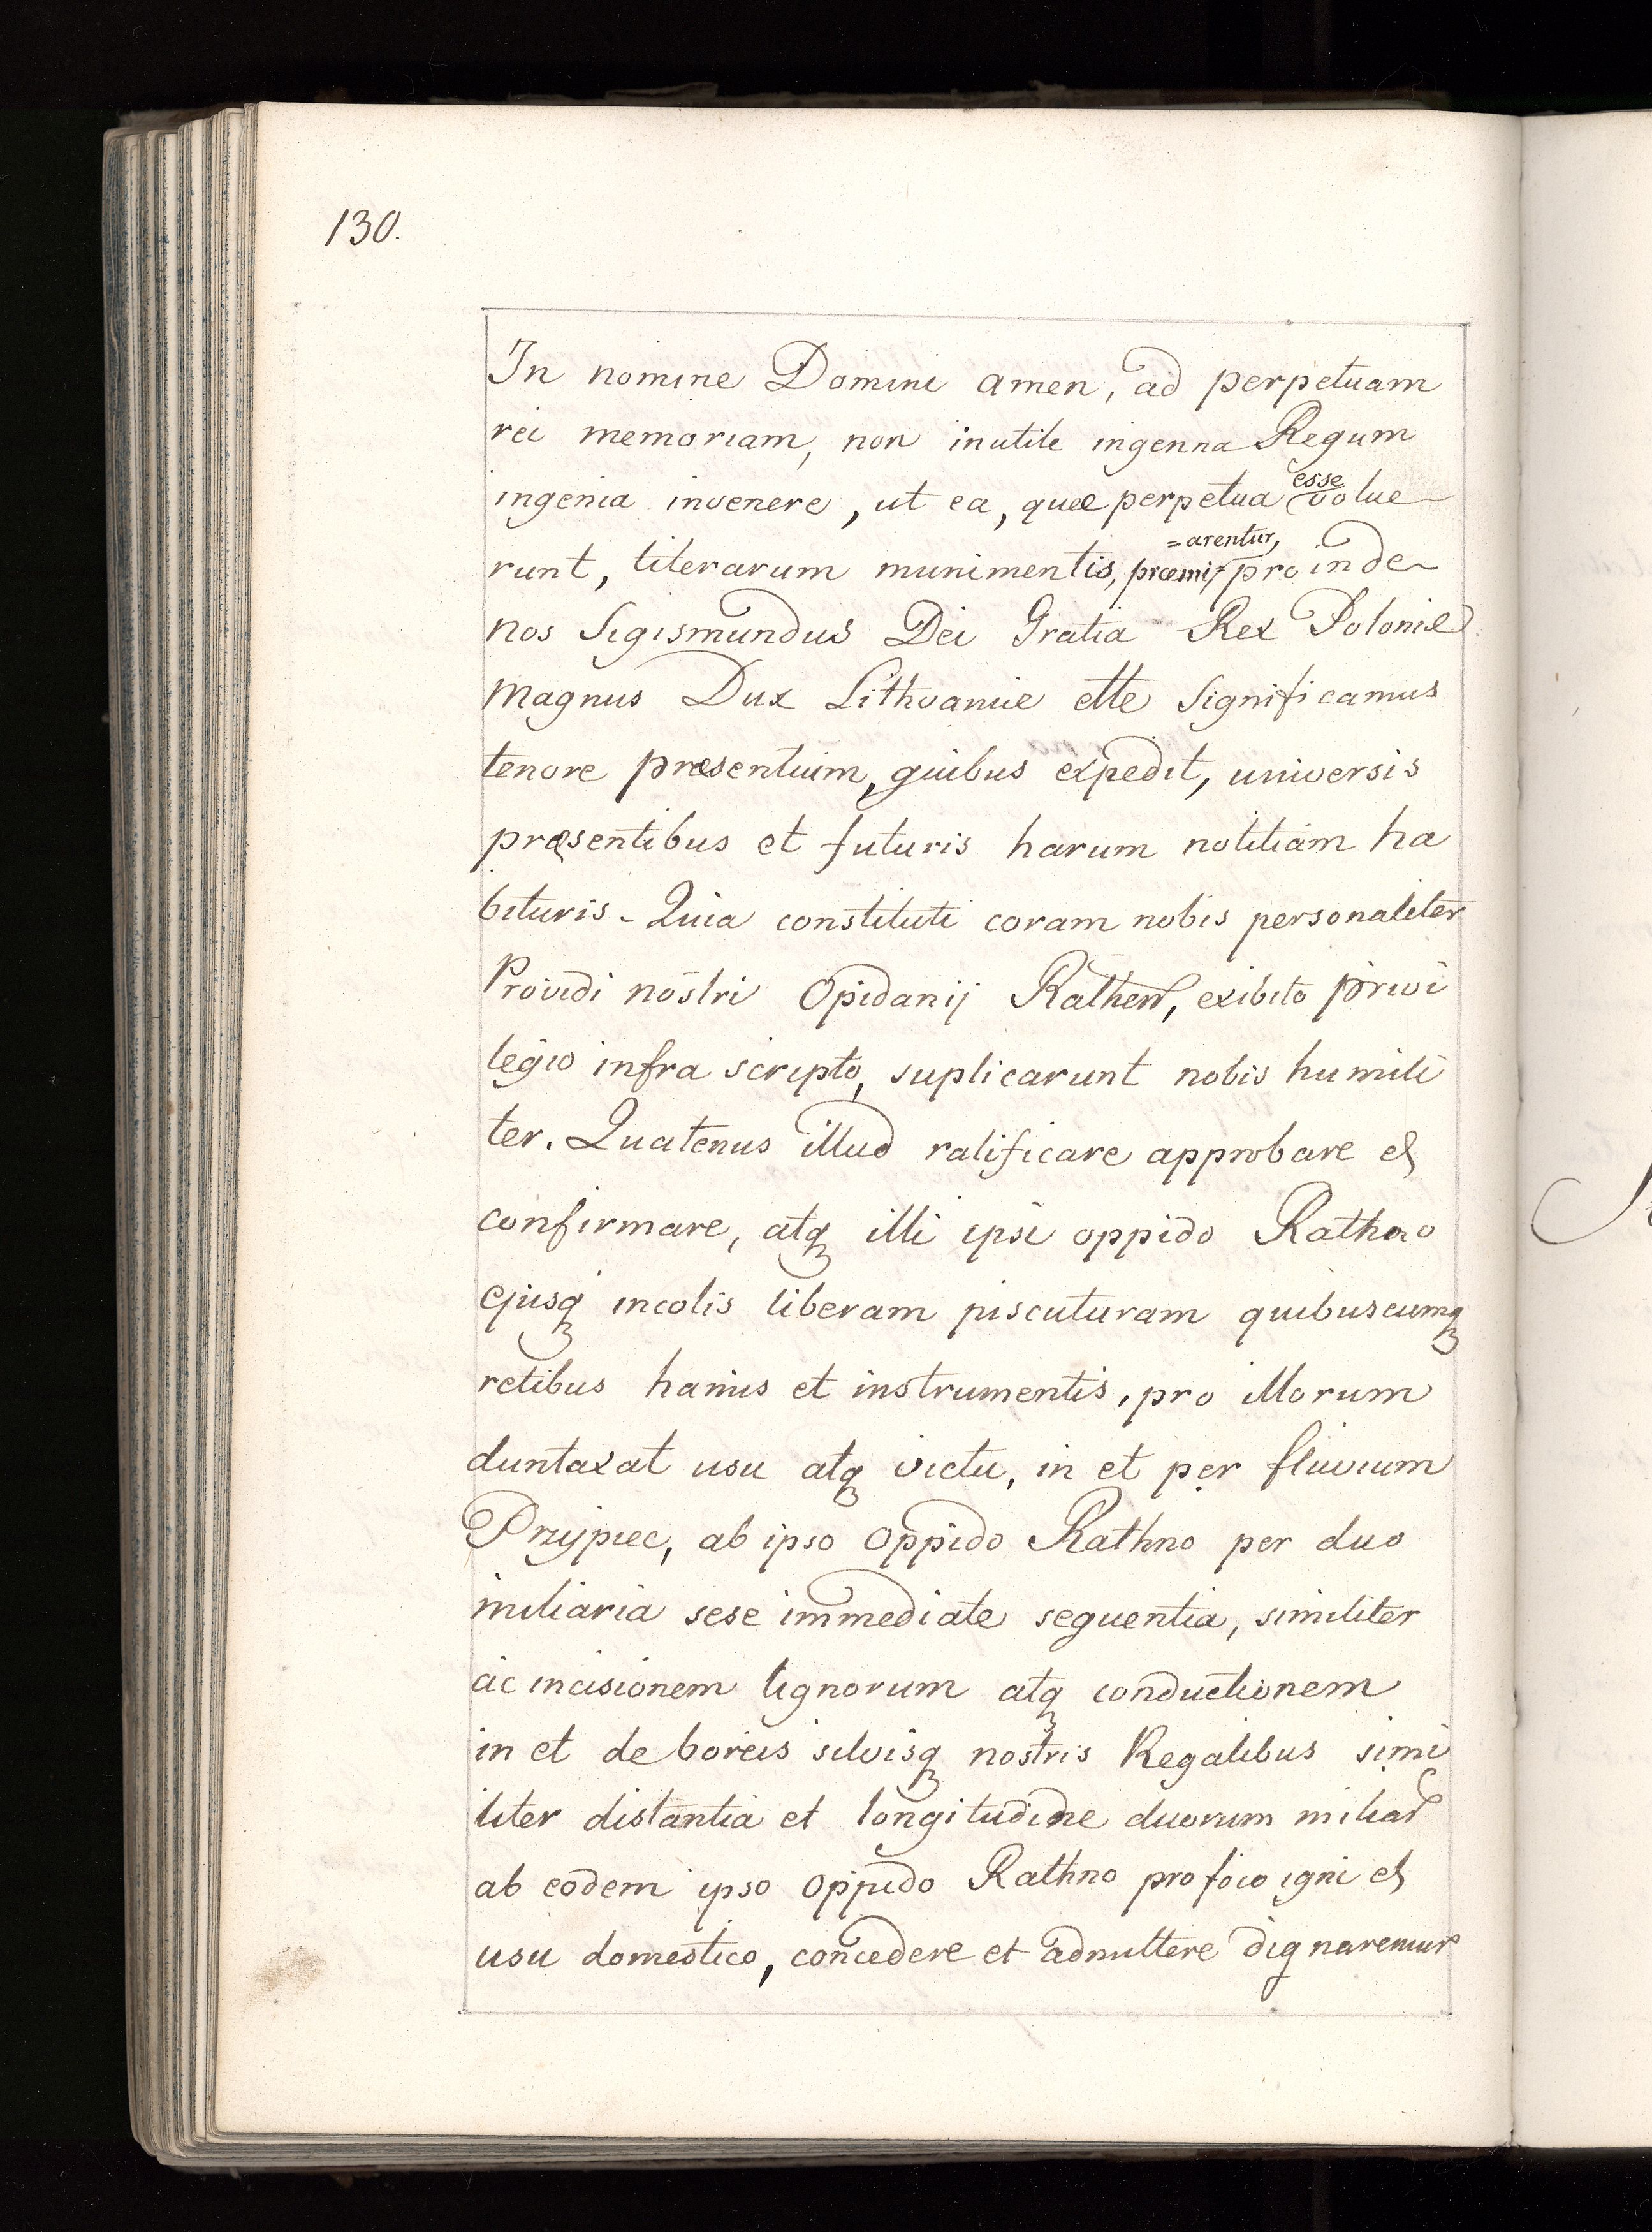 130.
In nomine Domini amen, ad perpetuam
rei memoriam, non inutile ingenna Regum
ingenia invenere, ut ea, quæ perpetua esse volue
runt, literarum munimentis, præmi=arentur, proinde
nos Sigismundus Dei Gratia Rex Poloniæ
Magnus Dux Lithvaniæ ette Significamus
tenore præsentium, quibus expedit, universis
præsentibus et futuris harum notitiam ha
bituris - Quia constituti coram nobis personaliter
Providi nostri Opidanij Rathen, exibito privi
legio infra scripto, suplicarunt nobis humili
ter. Quatenus illud ratificare approbare et
confirmare, atq illi ipsi oppido Rathno
ejusq incolis liberam piscuturam quibuscumq
retibus hamis et instrumentis, pro illorum
duntaxat usu atq victu, in et per fluvium
Przypiec, ab ipso Oppido Rathno per duo
miliaria sese immediate sequentia, similiter
ac incisionem lignorum atq conductionem
in et de boreis silvisq nostris Regalibus simi
liter distantia et longitudine duorum miliar
ab eodem ipso Oppido Rathno pro foco igni et
usu domestico, concedere et admittere dignaremur